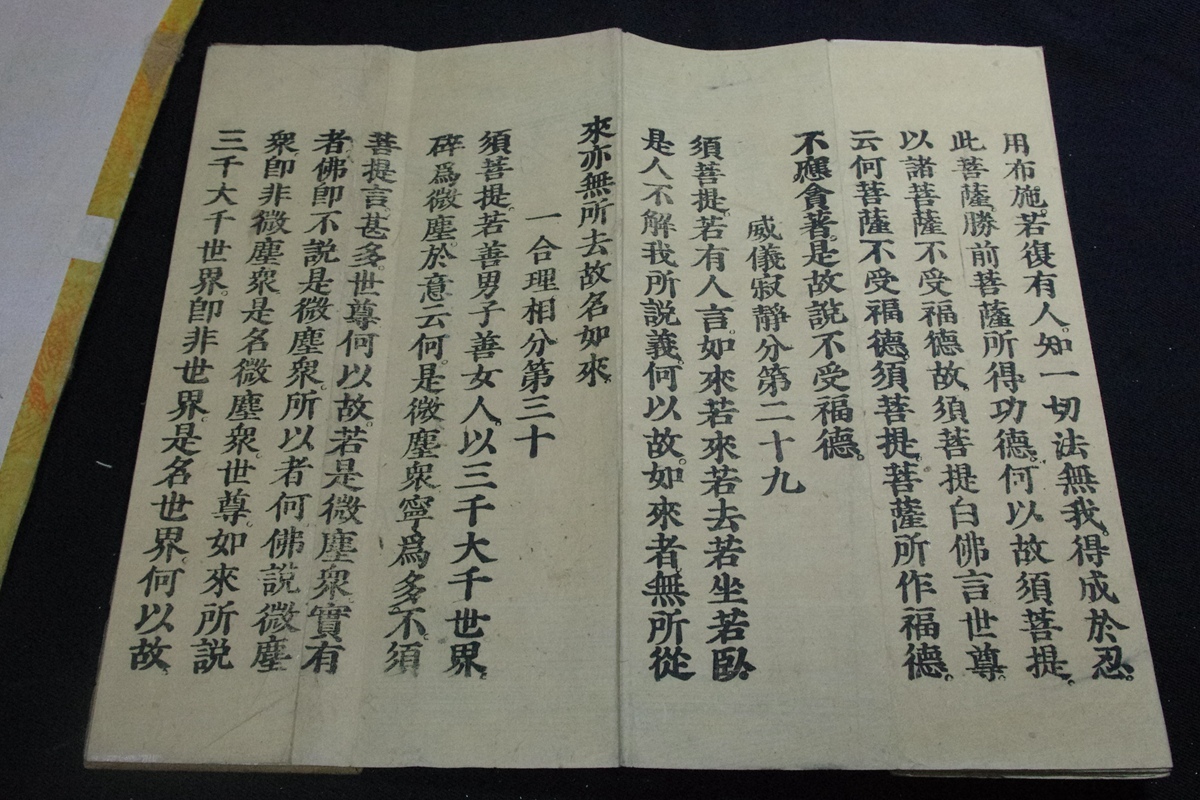 用布施。若復有人。知一切法無我。得成於忍。
此菩薩勝前菩薩所得功德。何以故須菩提。
以諸菩薩不受福德故。須菩提白佛言世尊。
云何菩薩不受福德。須菩提。菩薩所作福德。
不應貪著。是故說不受福德。
威儀寂靜分第二十九
須菩提。若有人言。如來若來若去若坐若臥。
是人不解我所說義。何以故。如來者無所從
來亦無所去故名如來。
一合理相分第三十
須菩提。若善男子善女人。以三千大千世界。
碎爲微塵。於意云何。是微塵衆寧爲多不。須
菩提言。甚多。世尊何以故。若是微塵衆。實有
者佛卽不說是微塵衆。所以者何佛說微塵
衆。卽非微塵衆是名微塵衆。世尊。如來所說
三千大千世界。卽非世界。是名世界。何以故。